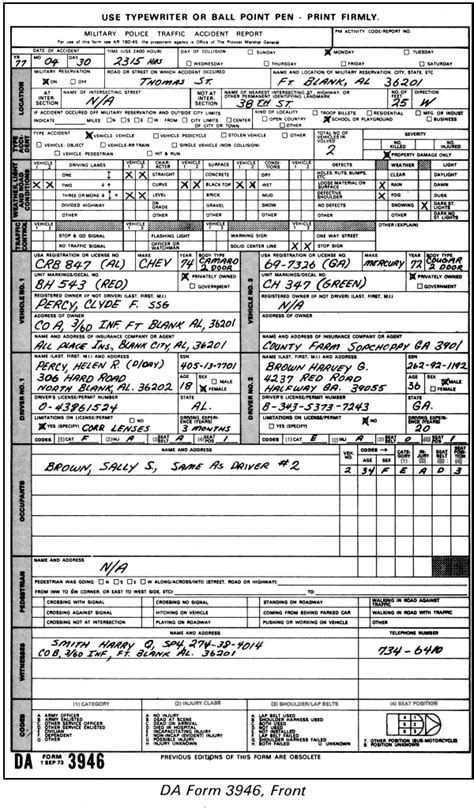 USE TYPEWRITER OR BALL POINT PEN - PRINT FIRMLY.
MILITARY POLICE TRAFFIC ACCIDENT REPORT
For use of this form see AR 190-45 the proponent agency is Office of The Provost Marshal General
PM ACTIVITY CODE/REPORT NO.
YR 77 MO 04 DAY 30
DATE OF ACCIDENT
TIME (USE 2400 HOUR) 2315 HRS
DAY OF COLLISION SUNDAY MONDAY TUESDAY
WEDNESDAY THURSDAY FRIDAY SATURDAY
LOCATION
MILITARY RESERVATION ON OFF
ROAD OR STREET ON WHICH ACCIDENT OCCURED
THOMAS ST.
NAME AND LOCATION OF MILITARY RESERVATION, CITY, STATE, ETC
FT. BLANK AL, 36201
AT INTERSECTION
NAME OF INTERSECTING STREET
N/A
NOT AT INTERSECTION
NAME OF NEAREST INTERSECTING ST, HIGHWAY, OR OTHER PERMANENT IDENTIFYING LANDMARK
38TH ST.
NO. OF FEET 25
DIRECTION W
IF ACCIDENT OCCURRED OFF MILITARY RESERVATION AND OUTSIDE CITY LIMITS
INDICATE MILES N S E W FROM CITY LIMITS CENTER OF CITY OR TOWN
KIND OF LOCATION TROOP BILLETS RESIDENTIAL MFG OR INDUST
OPEN COUNTRY SCHOOL OR PLAYGROUND BUSINESS
OTHER
TYPE ACCIDENT VEHICLE VEHICLE VEHICLE PEDICYCLE STOLEN VEHICLE OTHER
VEHICLE-OBJECT VEHICLE-RR TRAIN SINGLE VEHICLE (NON COLLISION)
VEHICLE PEDESTRIAN HIT & RUN
TOTAL NO OF VEHICLES INVOLVED
2
SEVERITY
NO. KILLED NO. INJURED
PROPERTY DAMAGE ONLY
WEATHER, LIGHT AND ROAD CONDITIONS
DRIVING LANES CHARACTER SURFACE CONDITION DEFECTS WEATHER LIGHT
ONE STRAIGHT CONCRETE DRY HOLES, RUTS, BUMPS, CLEAR DAWN
TWO CURVE BLACK TOP WET LOOSE MATERIAL ON SURFACE RAIN DAWN
THREE OR MORE LEVEL BRICK MUD DEFECTIVE SHOULDER FOG DUSK
DIVIDED HIGHWAY ON GRADE GRAVEL SNOW NO DEFECTS SNOWING DARK ST. LIGHTS
OTHER OTHER OTHER OTHER OTHER OTHER DARK NO ST. LIGHTS
TRAFFIC CONTROL
STOP & GO SIGNAL FLASHING LIGHT WARNING SIGN ONE WAY STREET OTHER (EXPLAIN)
NO TRAFFIC SIGNAL OFFICER OR WATCHMAN SOLID CENTER LINE STOP SIGN
VEHICLE NO. 1
USA REGISTRATION OR LICENSE NO
CRB 847 (AL)
MAKE CHEV
YEAR 74
BODY TYPE CAMARO 2 DOOR
UNIT MARKINGS/DECAL NO
BH 543 (RED)
PRIVATELY OWNED
GOVERNMENT
REGISTERED OWNER (IF NOT DRIVER) (LAST, FIRST, M.I.)
PERCY, CLYDE F. SSG
ADDRESS OF OWNER
CO A, 3/60 INF FT BLANK AL, 36201
NAME AND ADDRESS OF INSURANCE COMPANY OR AGENT
ALL PLACE INS, BLANK CITY, AL, 36201
VEHICLE NO. 2
USA REGISTRATION OR LICENSE NO
69-7326 (GA)
MAKE MERCURY
YEAR 72
BODY TYPE COUGAR 2 DOOR
UNIT MARKINGS/DECAL NO
CH 347 (GREEN)
PRIVATELY OWNED
GOVERNMENT
REGISTERED OWNER (IF NOT DRIVER) (LAST, FIRST, M.I.)
N/A
ADDRESS OF OWNER
NAME AND ADDRESS OF INSURANCE COMPANY OR AGENT
COUNTY FARM SOPCHOPPY GA 3901
DRIVER NO. 1
NAME (LAST, FIRST, M.I.) AND ADDRESS
PERCY, HELEN R (D/DAY)
306 HARD ROAD
NORTH BLANK AL. 36202
SSN 405-13-7701
AGE 18 SEX MALE FEMALE
DRIVER'S LICENSE/PERMIT NUMBER
0-43861524
STATE AL.
LIMITATIONS ON LICENSE/PERMIT NO
YES (SPECIFY) CORR LENSES
DRIVING EXPERIENCE (YEARS)
3 MONTHS
CODES (1) CAT F (2) INJ A (3) SEAT A (4) SEAT 1
DRIVER NO. 2
NAME (LAST, FIRST, M.I.) AND ADDRESS
BROWN HARVEY G.
4237 RED ROAD
HALFWAY GA. 39055
SSN 262-92-1192
AGE 36 SEX MALE FEMALE
DRIVER'S LICENSE/PERMIT NUMBER
8-343-5373-7243
STATE GA.
LIMITATIONS ON LICENSE/PERMIT NO
YES (SPECIFY)
DRIVING EXPERIENCE (YEARS)
20
CODES (1) CAT E (2) INJ A (3) SEAT D (4) SEAT 1
OCCUPANTS
NAME AND ADDRESS
VEH. NO. CODES AGE SEX CATEGORY (1) INJURY (2) SEAT BELT (3) SEAT POSITION (4)
BROWN, SALLY S, SAME AS DRIVER #2 2 34 F E A D 3
PEDESTRIAN
NAME AND ADDRESS
N/A
PEDESTRIAN WAS GOING N S E W ALONG/ACROSS/INTO (STREET, ROAD OR HIGHWAY):
FROM (NW TO SW CORNER, OR EAST TO WEST SIDE, ETC) TO:
CROSSING WITH SIGNAL CROSSING NO SIGNAL STANDING ON ROADWAY WALKING IN ROAD AGAINST TRAFFIC
CROSSING AGAINST SIGNAL HITCHING ON VEHICLE COMING FROM BEHIND PARKED CAR WALKING IN ROAD WITH TRAFFIC
CROSSING NOT AT INTERSECTION PLAYING ON ROADWAY PUSHING OR WORKING ON VEHICLE OTHER
WITNESSES
NAME AND ADDRESS TELEPHONE NUMBER
SMITH HARRY Q, SP4, 274-38-4014
CO B, 3/60 INF, FT. BLANK AL. 36201
734-6410
CODES
(1) CATEGORY
A ARMY OFFICER
B ARMY ENLISTED
C OTHER SERVICE OFFICER
D OTHER SERVICE ENLISTED
E CIVILIAN
F DEPENDENT
G OTHER
(2) INJURY CLASS
A NO INJURY
B DEAD AT SCENE
C DEAD ON ARRIVAL
D DIED IN HOSPITAL
E INCAPACITATING INJURY
F NON-INCAP (EVIDENT) INJURY
G POSSIBLE INJURY
H INJURY UNKNOWN
(3) SHOULDER/LAP BELTS
A LAP BELT USED
B SHOULDER HARNESS USED
C BOTH USED
D NOT USED
E NOT INSTALLED
F LAP BELT FAILED
G SHOULDER HARNESS FAILED
H BOTH FAILED
UNKNOWN
(4) SEAT POSITION
7 OTHER POSITION (BUS-MOTORCYCLE)
8 POSITION UNKNOWN
DA FORM 1 SEP 73 3946
PREVIOUS EDITIONS OF THIS FORM ARE OBSOLETE
DA Form 3946, Front